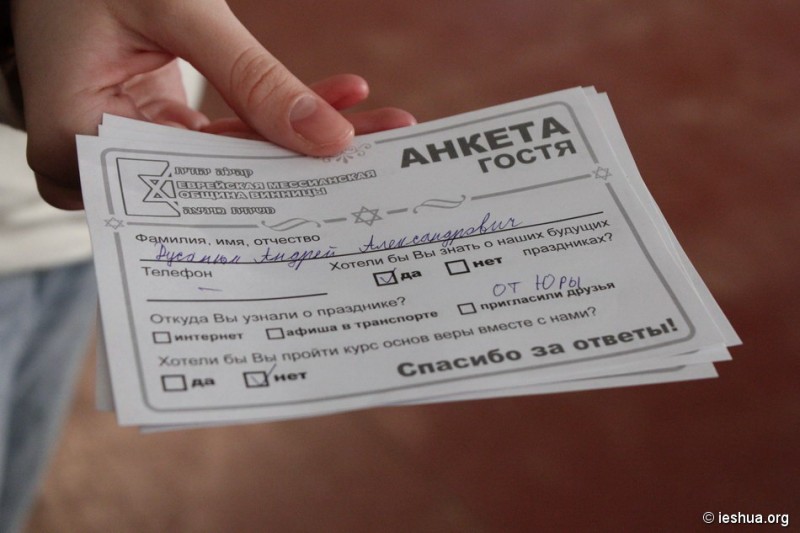 АНКЕТА
ГОСТЯ
ЕВРЕЙСКАЯ МЕССИАНСКАЯ
ОБЩИНА ВИННИЦЫ
Фамилия, имя, отчество
Андрей Александрович
Телефон –
Хотели бы Вы знать о наших будущих праздниках?
да нет
Откуда Вы узнали о празднике?
от Юры
интернет афиша в транспорте пригласили друзья
Хотели бы Вы пройти курс основ веры вместе с нами?
да нет
Спасибо за ответы!
© ieshua.org